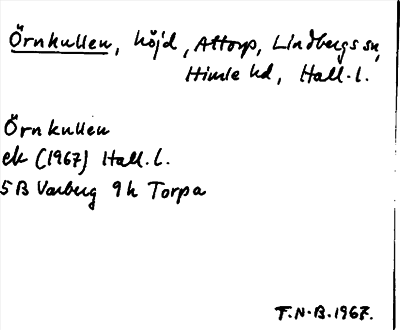 Örnkullen, höjd, Attorp, Lindbergs sn,
Himle hd, Hall. l.
Örnkullen
ek (1967) Hall. l.
5B Varberg 9h Torpa
T.N.B. 1967.